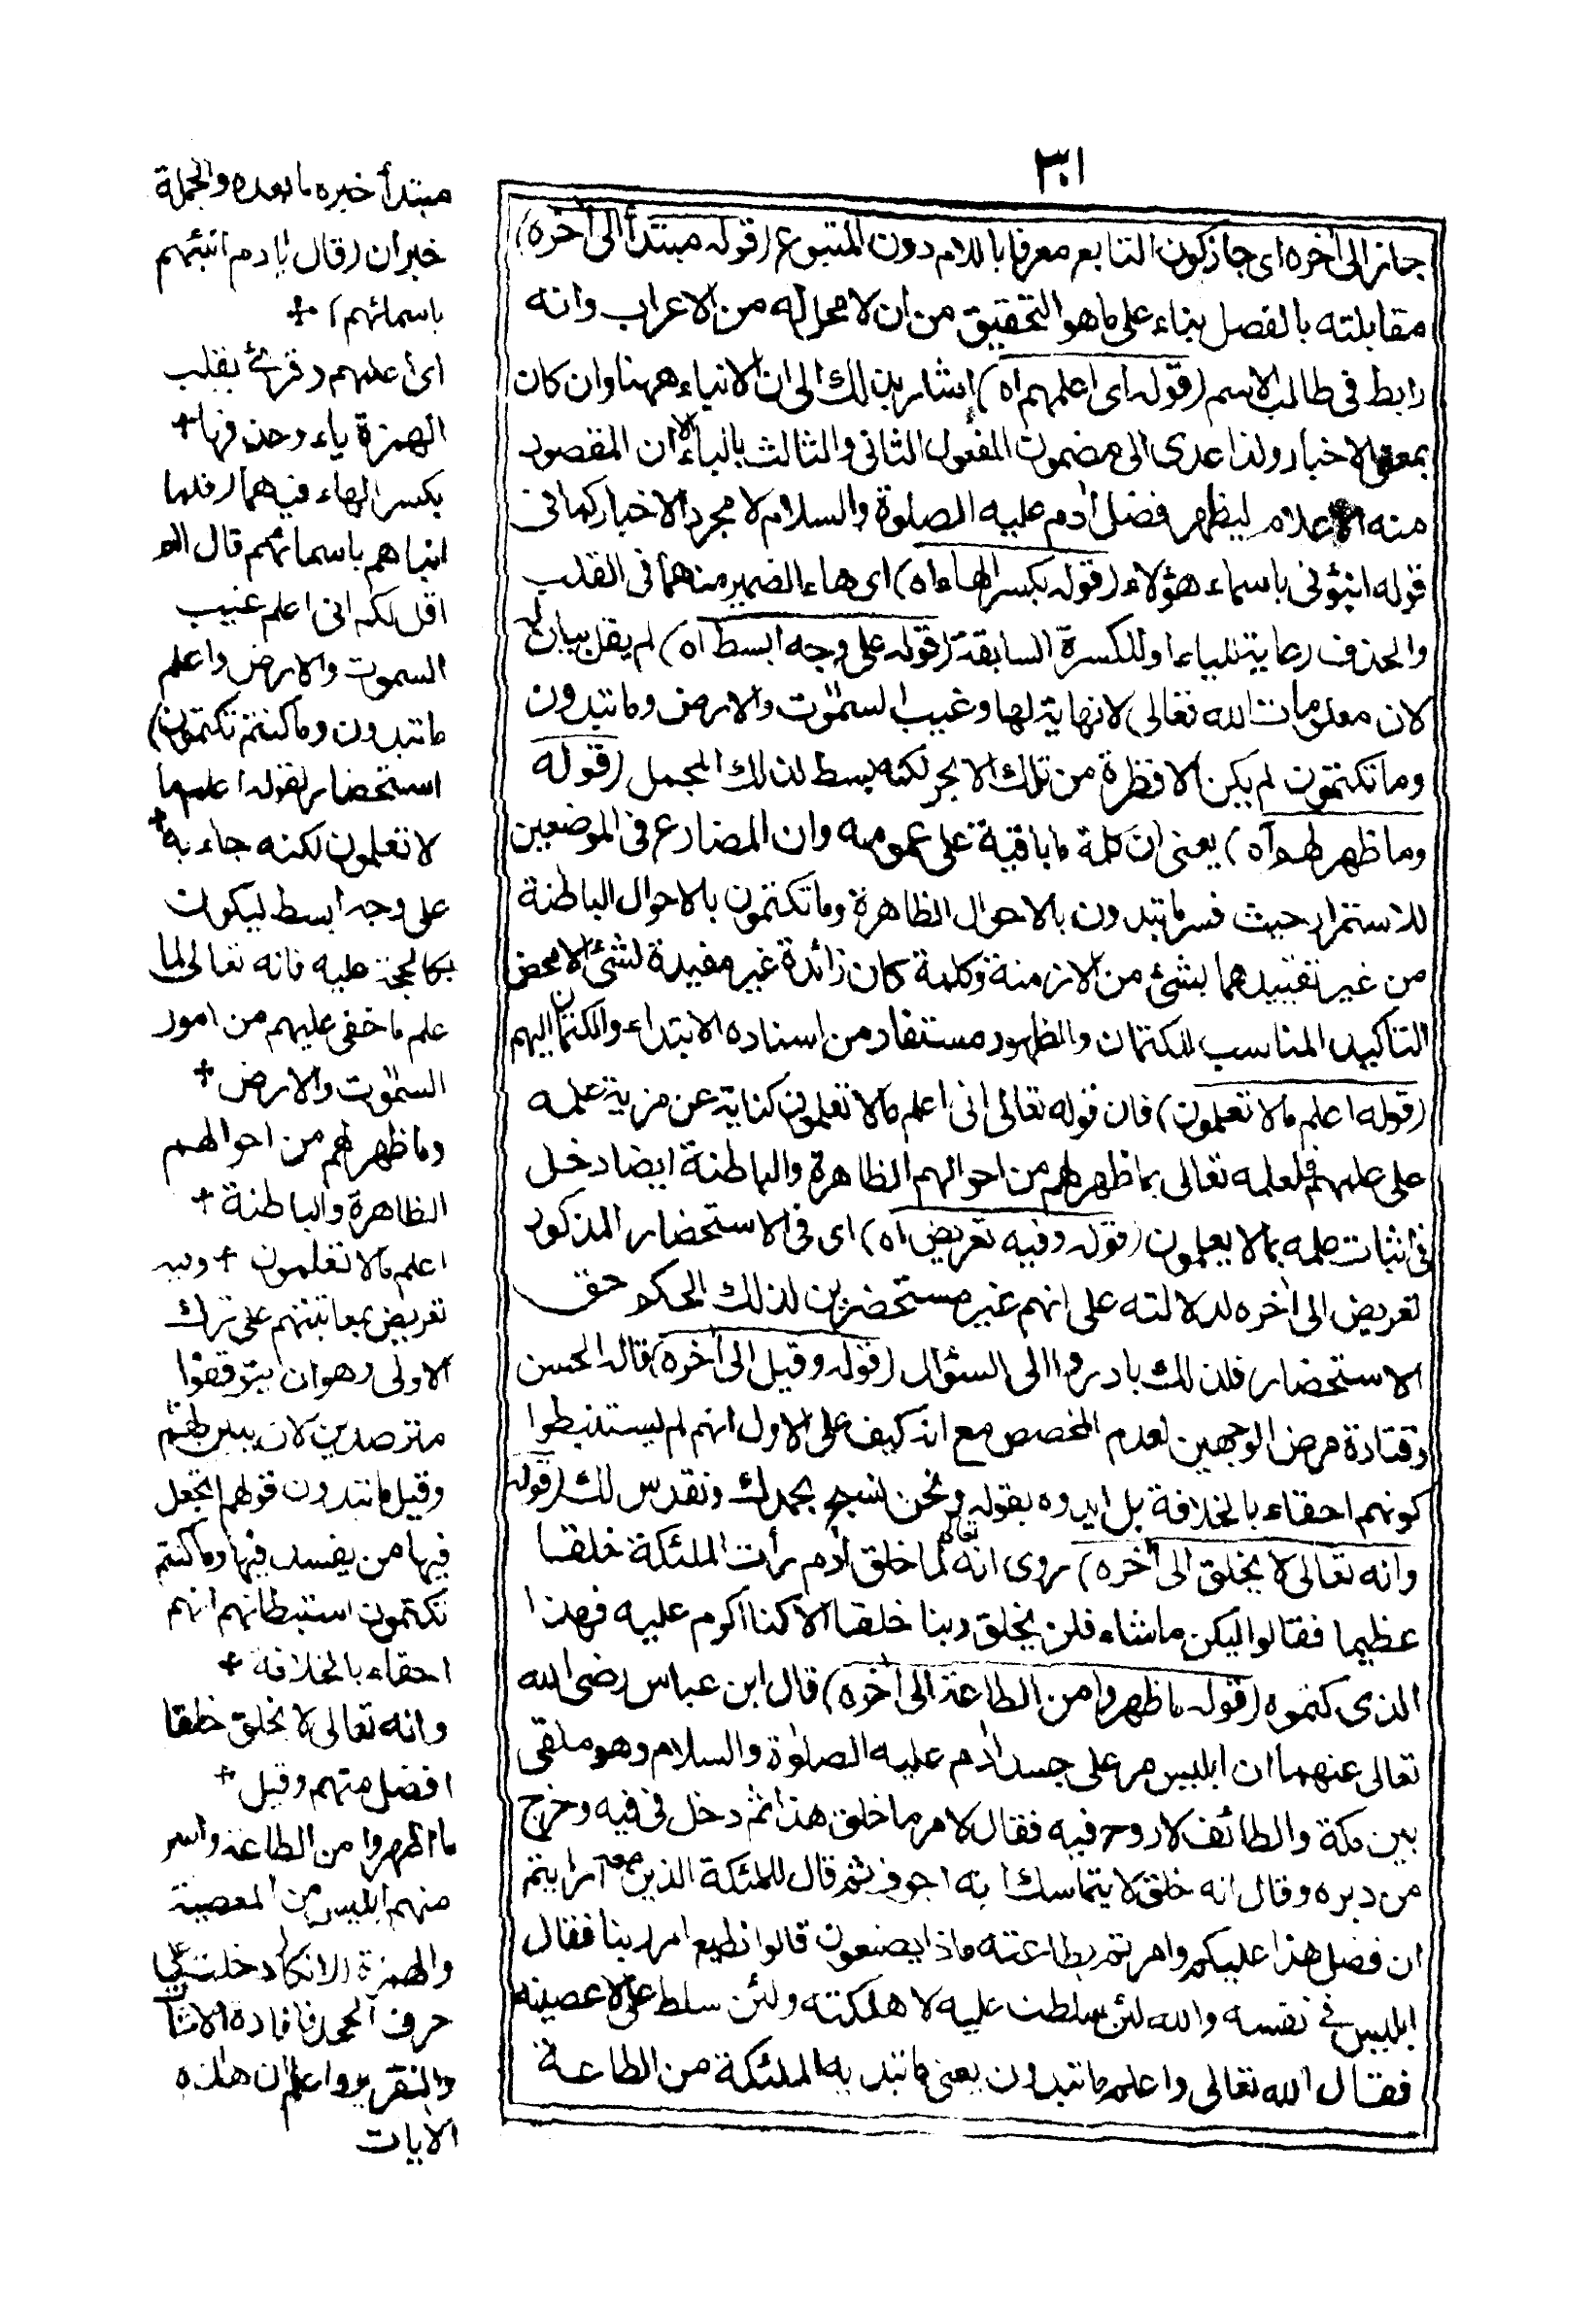 ٣٠١
جائز الى اخره اى جاز كون التابع معرفا باللام دون المتبوع (قوله مبتدأ الى اخره)
مقابلته بالفصل بناء على ما هو التحقيق من ان لا محل له من الاعراب وانه
رابط فى طالب الاسم (قوله اى اعلمهم اه) اشار بذلك الى ان الانباء ههنا وان كان
بمعنى الاخبار ولذا عدى الى مضمون المفعول الثانى والثالث بالباء الا ان المقصود
منه الاعلام ليظهر فضل ادم عليه الصلوة والسلام لا مجرد الاخبار كما فى
قوله انبؤنى باسماء هؤلاء (قوله بكسر الهاء اه) اى هاء الضمير منهما فى القلب
والحذف رعاية للياء او للكسرة السابقة (قوله على وجه ابسط اه) لم يقل بيان له
لان معلومات الله تعالى لا نهاية لها وغيب السموت والارض وما تبدون
وما تكتمون لم يكن الا قطرة من تلك الابحر لكنه بسط لذلك المجمل (قوله
وما ظهر لهم اه) يعنى ان كلمة ما باقية على عمومه وان المضارع فى الموضعين
للاستمرار حيث فسر ما تبدون بالاحوال الظاهرة وما تكتمون بالاحوال الباطنة
من غير تقييدهما بشئ من الازمنة وكلمة كان زائدة غير مفيدة لشئ الا محض
التاكيد المناسب للكتمان والظهور مستفاد من اسناده الابتداء والكتمان اليهم
(قوله اعلم ما لا تعلمون) فان قوله تعالى انى اعلم ما لا تعلمون كناية عن مزية علمه
على علمهم فلعلمه تعالى بما ظهر لهم من احوالهم الظاهرة والباطنة ايضا دخل
فى اثبات علمه بما لا يعلمون (قوله وفيه تعريض اه) اى فى الاستحضار المذكور
تعريض الى اخره لدلالته على انهم غير مستحضرين لذلك الحكم حق
الاستحضار فلذلك بادروا الى السؤال (قوله وقيل الى اخره) قاله الحسن
وقتادة مرض الوجهين لعدم المخصص مع انه كيف على الاول انهم لم يستنبطوا
كونهم احقاء بالخلافة بل ابدوه بقوله ونحن نسبح بحمدك ونقدس لك (قوله
وانه تعالى لا يخلق الى اخره) روى انه تعالى لما خلق ادم رأت الملئكة خلقا
عظيما فقالوا ليكن ما شاء فلن يخلق ربنا خلقا الا كنا اكرم عليه فهذا
الذى كتموه (قوله ما ظهروا من الطاعة الى اخره) قال ابن عباس رضى الله
تعالى عنهما ان ابليس مر على جسد ادم عليه الصلوة والسلام وهو ملقى
بين مكة والطائف لا روح فيه فقال لامر ما خلق هذا ثم دخل فى فيه وخرج
من دبره وقال انه خلق لا يتماسك لانه اجوف ثم قال للملئكة الذين معه ارايتم
ان فضل هذا عليكم وامرتم بطاعته ماذا يصنعون قالوا نطيع امر ربنا فقال
ابليس فى نفسه والله لئن سلطت عليه لاهلكته ولئن سلط على لاعصينه
فقال الله تعالى واعلم ما تبدون يعنى ما تبديه الملئكة من الطاعة
مبتدأ خبره ما بعده والجملة
خبر ان (قال يا ادم انبئهم
باسمائهم) +
اى اعلمهم وقرئ بقلب
الهمزة ياء وحذفها +
بكسر الهاء فيهما (فلما
انباهم باسمائهم قال الم
اقل لكم انى اعلم غيب
السموت والارض واعلم
ما تبدون وما كنتم تكتمون)
استحضار لقوله اعلم ما
لا تعلمون لكنه جاء به +
على وجه ابسط ليكون
كالحجة عليه فانه تعالى لما
علم ما خفى عليهم من امور
السموت والارض +
وما ظهر لهم من احوالهم
الظاهرة والباطنة +
اعلم ما لا تعلمون + وفيه
تعريض بمعاتبتهم على ترك
الاولى وهو ان يتوقفوا
مترصدين لان يبين لهم
وقيل ما تبدون قولهم اتجعل
فيها من يفسد فيها وما كنتم
تكتمون استبطانهم انهم
احقاء بالخلافة +
وانه تعالى لا يخلق خلقا
افضل منهم وقيل +
ما اظهروا من الطاعة واسر
منهم ابليس من المعصية
والهمزة للانكار دخلت على
حرف الجحد فافادة الاثبات
والتقرير واعلم ان هذه
الايات